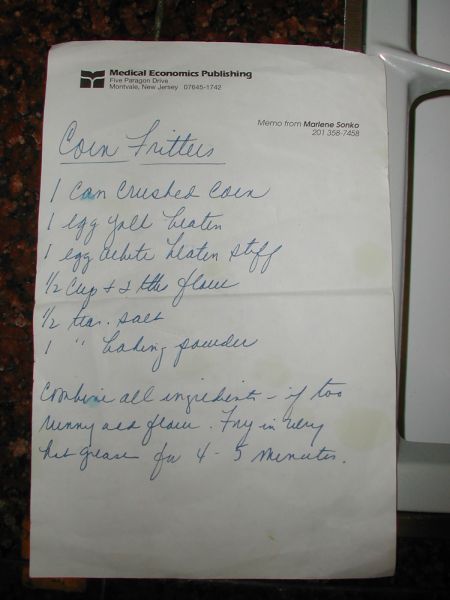 Medical Economics Publishing
Five Paragon Drive
Montvale, New Jersey 07645-1742
Memo from Marlene Sonko
201 358-7458
Corn Fritters
1 Can Crushed Corn
1 egg yolk beaten
1 egg white beaten stiff
1/2 Cup + 2 tbs flour
1/2 tea. salt
1 " baking powder
Combine all ingredients - if too
runny add flour. Fry in very
hot grease for 4 - 5 minutes.